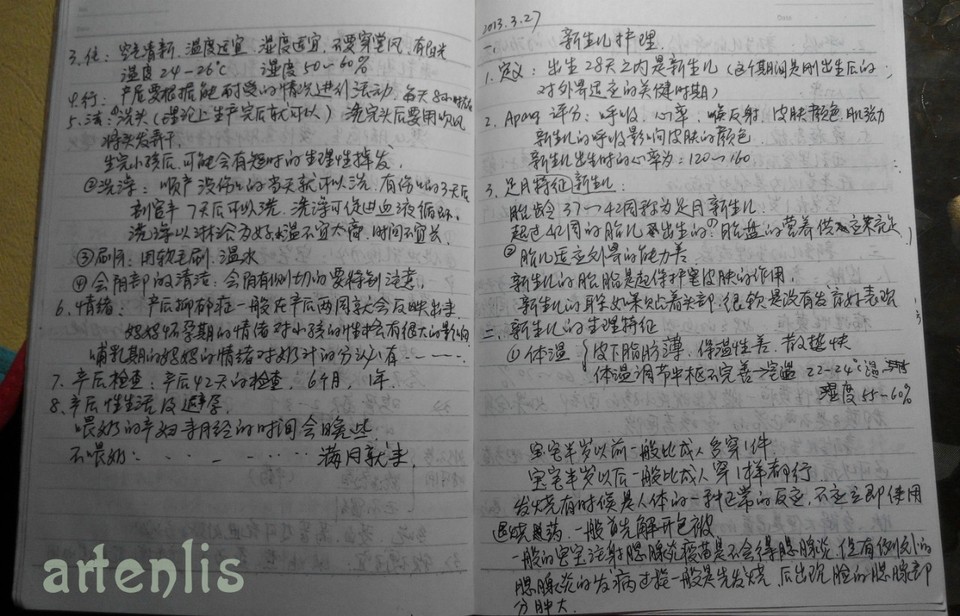 3.住：空气清新，温度适宜，湿度适宜，不要穿堂风，有阳光
温度24-26℃ 湿度50-60%
4.行：产后要根据能耐受的情况进行活动 每天8小时
5.洁：洗头（理论上生产完后就可以）洗完头后要用吹风
将头发弄干.
生完小孩后，可能会有短时的生理性掉发.
②洗澡：顺产没伤口的当天就可以洗，有伤口的3天后
剖宫产7天后可以洗. 洗澡可促进血液循环.
洗澡以淋浴为好水温不宜太高，时间不宜长.
③刷牙：用软毛刷，温水
④会阴部的清洁：会阴有侧切的要特别注意.
6.情绪：产后抑郁症一般在产后两周就会反映出来.
妈妈怀孕期的情绪对小孩的性格会有很大的影响
哺乳期的妈妈的情绪对奶汁的分泌有……
7.产后检查：产后42天的检查，6个月，1年.
8.产后性生活及避孕.
喂奶的产妇来月经的时间会晚些.
不喂奶：………… 满月就来.
2013.3.27
一、新生儿护理.
1.定义：出生28天之内是新生儿（这个期间是刚出生后的
对外界适应的关键时期）
2.Apang评分：呼吸，心率，喉反射，皮肤颜色，肌张力
新生儿的呼吸影响皮肤的颜色
新生儿出生时的心率为：120～160
3.足月特征新生儿：
胎龄37～42周称为足月新生儿.
超过42周的胎儿出生的①胎盘的营养供应来充足
②胎儿适应外界的能力差.
新生儿的胎脂是起保护宝皮肤的作用.
新生儿的耳朵如果贴着头部，很软是没有发育好表现
二、新生儿的生理特征
①体温 { 皮下脂肪薄，保温性差，散热快
体温调节中枢不完善 室温22-24℃
湿度55-60%
宝宝半岁以前一般比成人多穿1件
宝宝半岁以后一般比成人穿1样都行.
发烧有时候是人体的一种正常的反应，不应立即使用
退烧药，一般首先解开包被
一般的宝宝注射腮腺炎疫苗是不会得腮腺炎，但有例外的
腮腺炎的发病过程一般是先发烧，后出现脸的腮腺部
分肿大.
artenlis